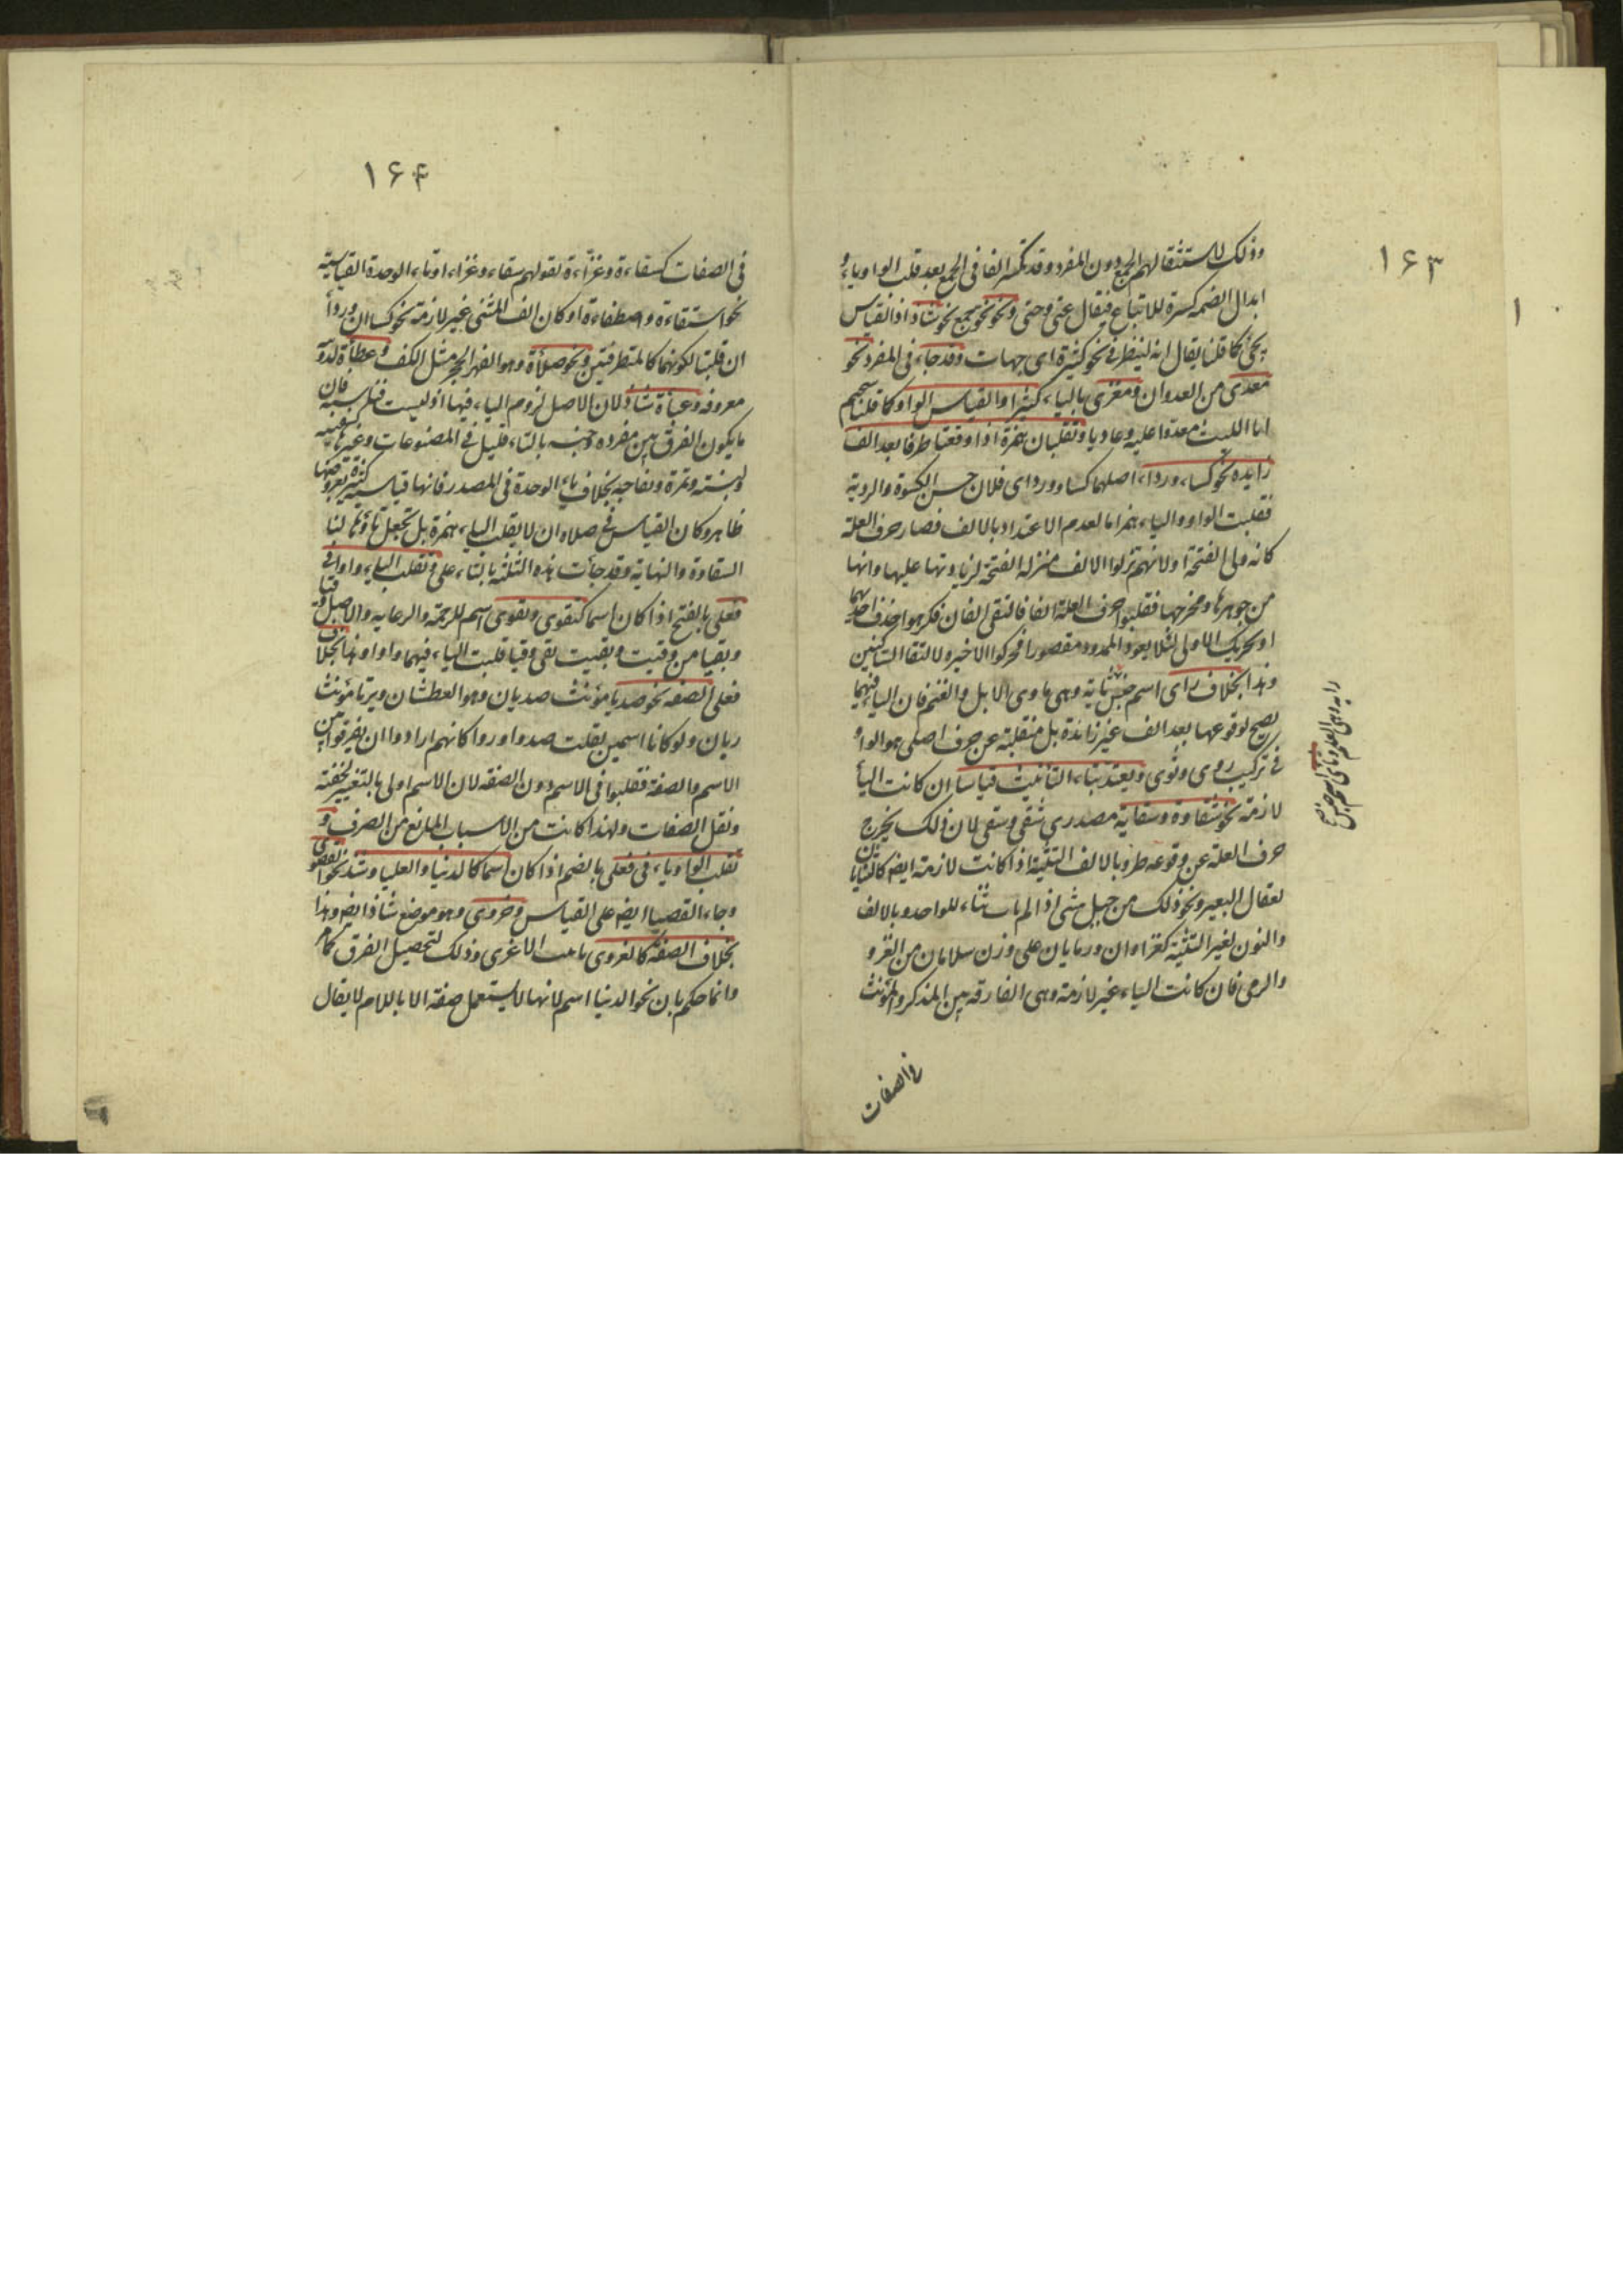 ١٦٣
وذلك لاستثقالهم الجمع دون المفرد وقد تكسر الفا فى الجمع بعد قلب الواو ياء و
ابدال الضمه كسرة للاتباع فيقال عتى وجثى ونحو نحو جمع نحو شاذ اذ القياس
نحى كما قلنا يقال انه لينظر فى نحو كثيرة اى جهات وقد جاء فى المفرد نحو
معدى من العدوان ومغزى بالياء كثيرا والقياس الواو كما قلنا
انا الليث معدوا عليه وعاديا وتقلبان همزة اذا وقعتا طرفا بعد الف
زايده نحو كساء ورداء اصلهما كساو ورداى فلان حسن الكسوة والردية
فقلبت الواو والياء همزا ما لعدم الاعتداد بالالف فصار حرف العلة
كانه ولى الفتحة او لانهم نزلوا الالف منزلة الفتحة لزيادتها عليها وانها
من جوهرها ومخرجها فقلبوا حرف العلة الفا فالتقى الفان فكرهوا حذف احديهما
او تحريك الاولى لئلا يعود الممدود مقصورا فحركوا الاخيرة لالتقا الساكنين
وهذا بخلاف راى اسم جنس ثاية وهى ماوى الابل والغنم فان الياء فيهما
يصح لوقوعها بعد الف غير زائدة بل منقلبة عن حرف اصلى هو الواو
فى تركيب روى وثوى ويعتد بتاء التانيث قياسا ان كانت اليأ
لازمة نحو شقاوة وسقاية مصدرى شقى وسقى لان ذلك يخرج
حرف العلة عن وقوعه طرفا وبالالف التثنية اذا كانت لازمة ايضا كالثنايان
لعقال البعير ونحو ذلك من حبل مثنى اذ لم يات ثناء للواحد وبالالف
والنون لغير التثنية كغزاوان ورمايان على وزن سلامان من الغزو
والرمى فان كانت الياء غير لازمة وهى الفارقه بين المذكر والمؤنث
فى الصفات
١٦٤
فى الصفات كسقاءة وغزاءة لقولهم سقاء وغزاء او تاء الوحدة القياسية
نحو استقاءة واصطفاءة او كان الف المثنى غير لازمة نحو كساان ورداأ
ان قلبتا لكونهما كالمتطرفتين ونحو صلأة وهو الفهر الحجر مثل الكف وعظأة لدويبة
معروفه وعبأة شاذ لان الاصل لزوم الياء فيها اذ ليست
ما يكون الفرق بين مفرده وجنسه بالتاء قليل فى المصنوعات وغيرها
ولبنته وتمرة وتفاحه بخلاف تاء الوحدة فى المصدر فانها قياسية كثيرة
ظاهر وكان القياس فى صلاه ان لا يقلب الياء همزة بل تجعل
السقاوة والنهاية وقد جأت هذه الثلثة بالتاء على وتقلب الياء واوا فى
فعلى بالفتح اذا كان اسما كتقوى وبقوى اسم للرحمة والرعاية والاصل وقيا
وبقيا من وقيت وبقيت تقى وقيا قلبت الياء فيهما واوا وهذا بخلاف
فعلى الصفه نحو صديا مؤنث صديان وهو العطشان وريا مؤنث
ريان ولو كانا اسمين لقلت صدوا وروا كانهم ارادوا ان يفرقوا بين
الاسم والصفة فقلبوا فى الاسم دون الصفه لان الاسم اولى بالتغيير لخفته
وثقل الصفات ولهذا كانت من الاسباب المانع من الصرف و
تقلب الواو ياء فى فعلى بالضم اذا كان اسما كالدنيا والعليا وشذ نحو القصوى
وجاء القصيا ايضا على القياس وحزوى وهو موضع شاذ ايضا وهذا
بخلاف الصفة كالغزوى تانيث الاغزى وذلك لتحصيل الفرق كما مر
وانما حكم بان نحو الدنيا اسم لانها لا يستعمل صفة الا باللام لا يقال